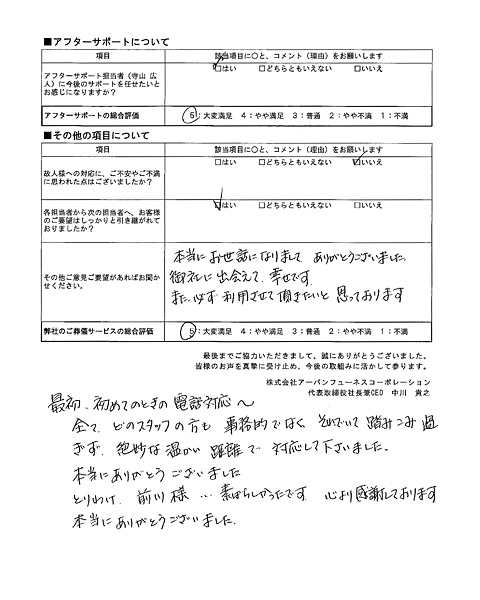 ■アフターサポートについて
項目 該当項目に○と、コメント（理由）をお願いします
アフターサポート担当者（寺山 広
人）に今後のサポートを任せたいと
お感じになりますか？
□はい □どちらともいえない □いいえ
アフターサポートの総合評価 5：大変満足 4：やや満足 3：普通 2：やや不満 1：不満
■その他の項目について
項目 該当項目に○と、コメント（理由）をお願いします
故人様への対応に、ご不安やご不満
に思われた点はございましたか？
□はい □どちらともいえない □いいえ
各担当者から次の担当者へ、お客様
のご要望はしっかりと引き継がれて
おりましたか？
□はい □どちらともいえない □いいえ
その他ご意見ご要望があればお聞か
せください。
本当にお世話になりまして ありがとうございました。
御社に出会えて、幸せです。
また、必ず利用させて頂きたいと思っております
弊社のご葬儀サービスの総合評価 5：大変満足 4：やや満足 3：普通 2：やや不満 1：不満
最後までご協力いただきまして、誠にありがとうございました。
皆様のお声を真摯に受け止め、今後の取組みに活かして参ります。
株式会社アーバンフューネスコーポレーション
代表取締役社長兼CEO 中川 貴之
最初、初めてのときの電話対応へ
全て、どのスタッフの方も 事務的でなく、それでいて踏みこみ過
ぎず、絶妙な温かい距離で 対応して下さいました。
本当にありがとうございました
とりわけ、前川様…素ばらしかったです 心より感謝しております
本当にありがとうございました。